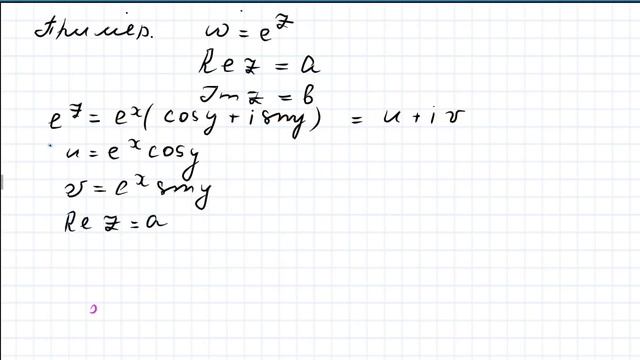 Пример. w = e^z
Re z = a
Im z = b
e^z = e^x ( cos y + i sin y ) = u + i v
u = e^x cos y
v = e^x sin y
Re z = a